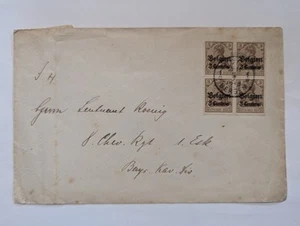 Belgien Belgien
3 Centimes 3 Centimes
Belgien Belgien
3 Centimes 3 Centimes
Herrn Leutnant Koenig
8. Chev. Rgt. 1. Esk.
Bayr. Kav. Div